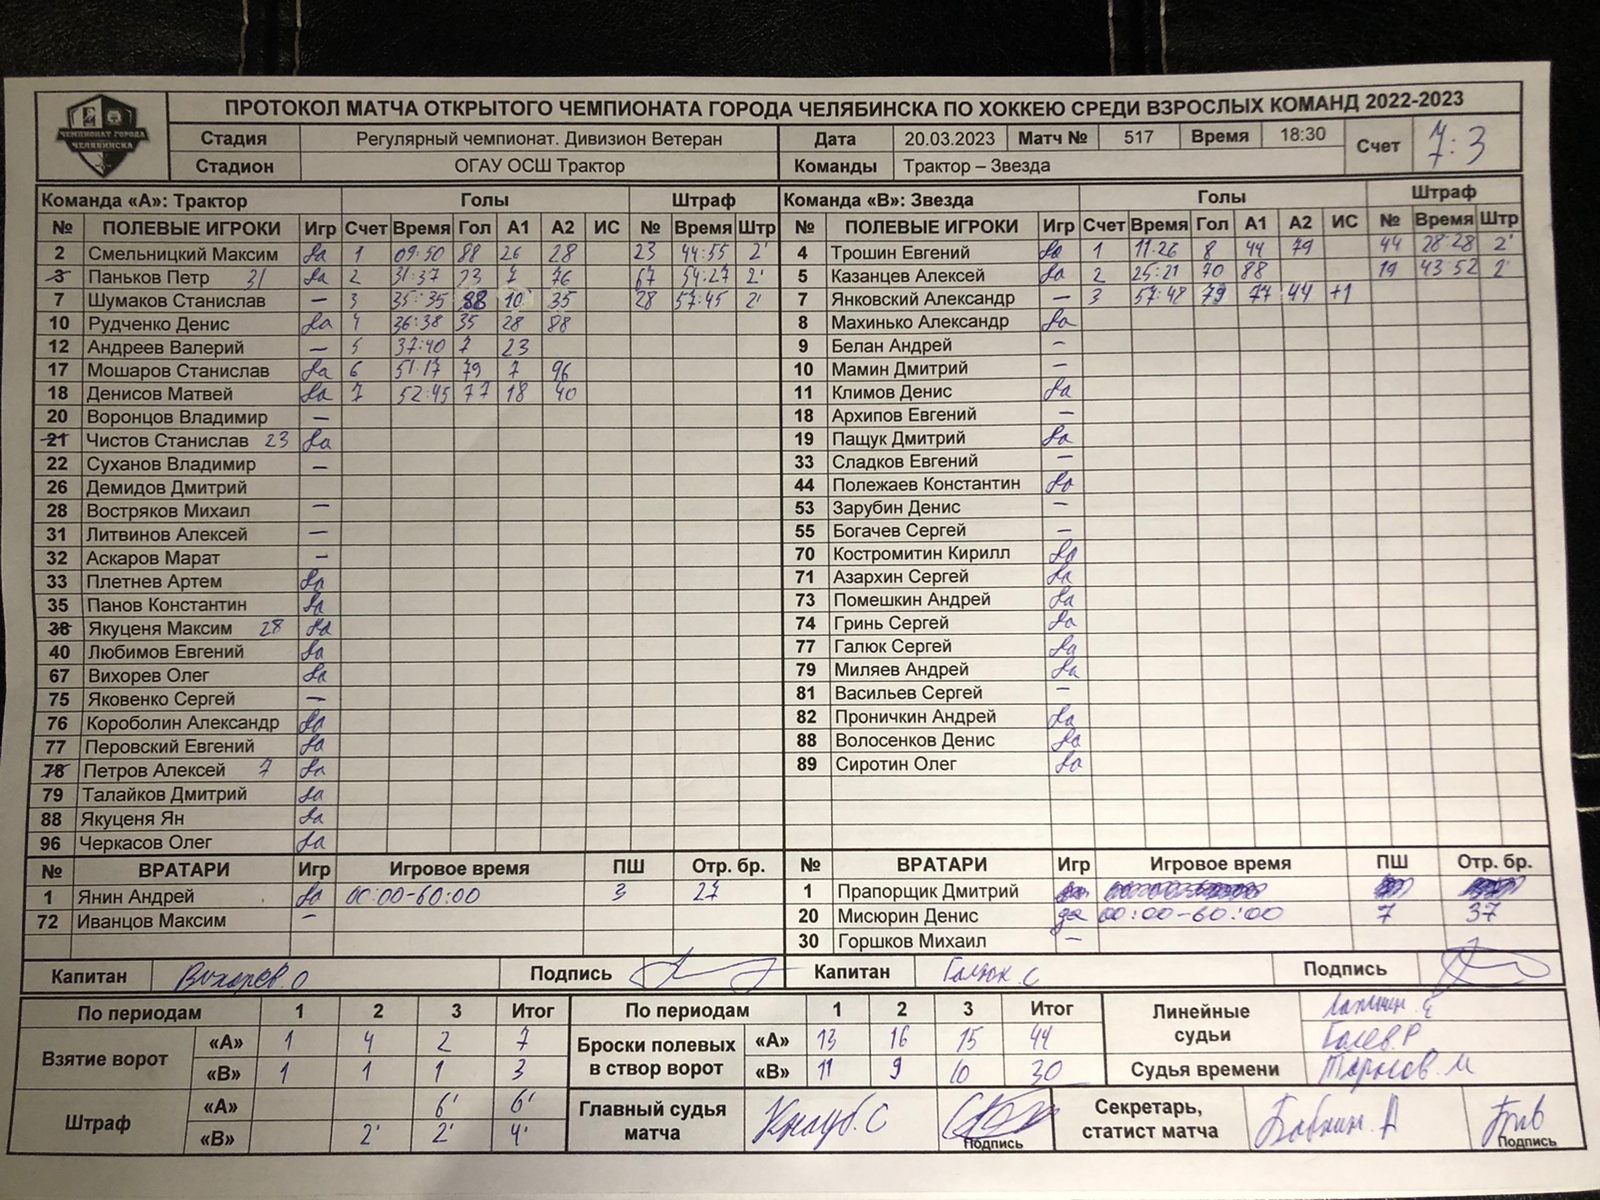 ЧЕМПИОНАТ ГОРОДА ЧЕЛЯБИНСКА
ПРОТОКОЛ МАТЧА ОТКРЫТОГО ЧЕМПИОНАТА ГОРОДА ЧЕЛЯБИНСКА ПО ХОККЕЮ СРЕДИ ВЗРОСЛЫХ КОМАНД 2022-2023
Стадия Регулярный чемпионат. Дивизион Ветеран Дата 20.03.2023 Матч № 517 Время 18:30 Счет 7:3
Стадион ОГАУ ОСШ Трактор Команды Трактор – Звезда
Команда «А»: Трактор Голы Штраф Команда «В»: Звезда Голы Штраф
№ ПОЛЕВЫЕ ИГРОКИ Игр Счет Время Гол А1 А2 ИС № Время Штр № ПОЛЕВЫЕ ИГРОКИ Игр Счет Время Гол А1 А2 ИС № Время Штр
2 Смельницкий Максим да 1 09:50 88 26 28 23 44:55 2' 4 Трошин Евгений да 1 11:26 8 44 79 44 28:28 2'
3 Паньков Петр 31 да 2 31:37 23 7 76 67 54:27 2' 5 Казанцев Алексей да 2 25:21 70 88 19 43:52 2'
7 Шумаков Станислав – 3 35:35 88 10 35 28 57:45 2' 7 Янковский Александр – 3 57:48 79 77 44 +1
10 Рудченко Денис да 4 36:38 35 28 88 8 Махинько Александр да
12 Андреев Валерий – 5 37:40 7 23 9 Белан Андрей –
17 Мошаров Станислав да 6 51:17 79 7 96 10 Мамин Дмитрий –
18 Денисов Матвей да 7 52:45 77 18 40 11 Климов Денис да
20 Воронцов Владимир – 18 Архипов Евгений –
21 Чистов Станислав 23 да 19 Пащук Дмитрий да
22 Суханов Владимир – 33 Сладков Евгений –
26 Демидов Дмитрий 44 Полежаев Константин да
28 Востряков Михаил – 53 Зарубин Денис –
31 Литвинов Алексей – 55 Богачев Сергей –
32 Аскаров Марат – 70 Костромитин Кирилл да
33 Плетнев Артем да 71 Азархин Сергей да
35 Панов Константин да 73 Помешкин Андрей да
38 Якуценя Максим 28 да 74 Гринь Сергей да
40 Любимов Евгений да 77 Галюк Сергей да
67 Вихорев Олег да 79 Миляев Андрей да
75 Яковенко Сергей – 81 Васильев Сергей –
76 Короболин Александр да 82 Проничкин Андрей да
77 Перовский Евгений да 88 Волосенков Денис да
78 Петров Алексей 7 да 89 Сиротин Олег да
79 Талайков Дмитрий да
88 Якуценя Ян да
96 Черкасов Олег да
№ ВРАТАРИ Игр Игровое время ПШ Отр. бр. № ВРАТАРИ Игр Игровое время ПШ Отр. бр.
1 Янин Андрей да 00:00-60:00 3 27 1 Прапорщик Дмитрий
72 Иванцов Максим – 20 Мисюрин Денис да 00:00-60:00 7 37
30 Горшков Михаил –
Капитан Вихорев.О Подпись Капитан Галюк.С Подпись
По периодам 1 2 3 Итог По периодам 1 2 3 Итог Линейные судьи
Взятие ворот «А» 1 4 2 7 Броски полевых в створ ворот «А» 13 16 15 44
«В» 1 1 1 3 «В» 11 9 10 30 Судья времени
Штраф «А» 6' 6' Главный судья матча Подпись Секретарь, статист матча Подпись
«В» 2' 2' 4'